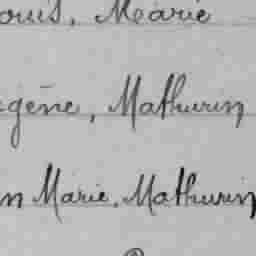 ouis, Méarie
gène, Mathurin
n Marie, Mathurin